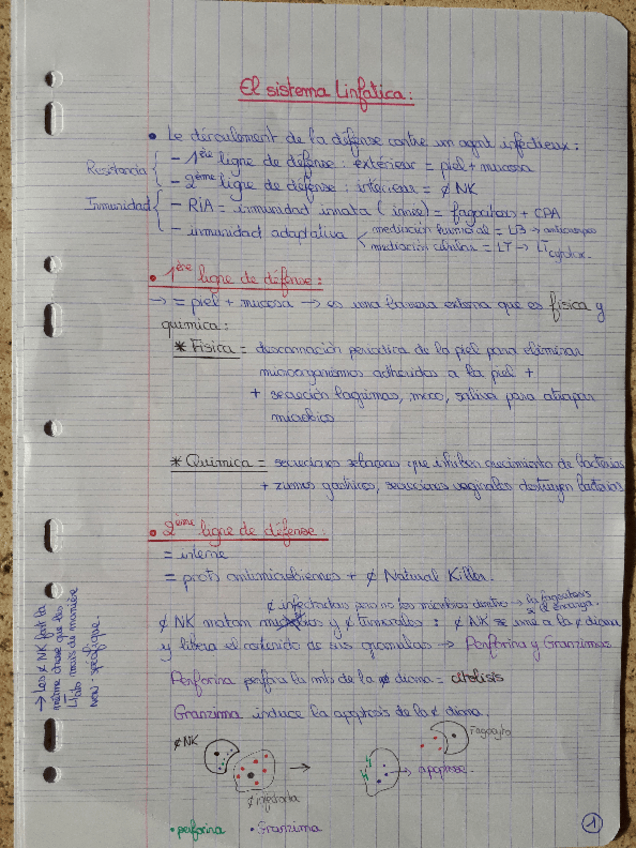 El sistema Linfatica:
• Le déroulement de la défense contre un agent infectieux:
Resistancia { - 1ère ligne de défense: extérieur = piel + mucosa
- 2ème ligne de défense: intérieur = ¢ NK
Inmunidad { - RIA = inmunidad innata (innée) = fagocitos + CPA
- inmunidad adaptativa < mediación humoral = LB → anticuerpos
mediación celular = LT → LT cytotox.
• 1ère ligne de défense:
→ = piel + mucosa → es una barrera externa que es física y
química:
* Física = descamación periodica de la piel para eliminar
microorganismos adheridos a la piel +
+ secreción lagrimas, moco, saliva para atrapar
microbios
* Química = secreciones sebaceas que inhiben crecimiento de bacterias
+ zumos gastricos, secreciones vaginales destruyen bacterias
• 2ème ligne de défense:
= interne
= prots antimicrobiennes + ¢ Natural Killer.
¢ infectadas pero no los microbios dentro → la fagocitosis
se encarga.
¢ NK matan y ¢ tumorales: ¢ NK se une a la ¢ diana
y libera el contenido de sus granulos → Perforina y Granzimas
Perforina perfora la mb de la ¢ diana = citolisis
Granzima induce la apoptosis de la ¢ diana.
→ Les ¢ NK font la
même chose que les
LT mais de manière
non spécifique.
¢ NK
¢ infectada
→ apoptose.
Fagocyto
• perforina • Granzima
1